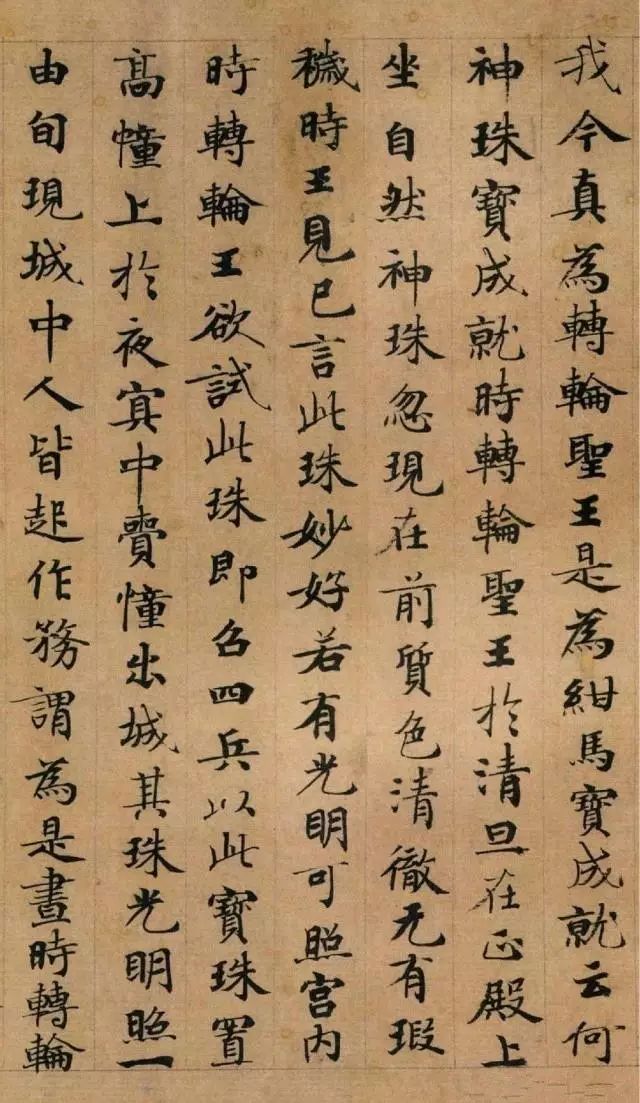 我今真為轉輪聖王是為紺馬寶成就云何
神珠寶成就時轉輪聖王於清旦在正殿上
坐自然神珠忽現在前質色清徹无有瑕
穢時王見已言此珠妙好若有光明可照宮内
時轉輪王欲試此珠即召四兵以此寶珠置
高憧上於夜冥中賷憧出城其珠光明照一
由旬現城中人皆起作務謂為是晝時轉輪